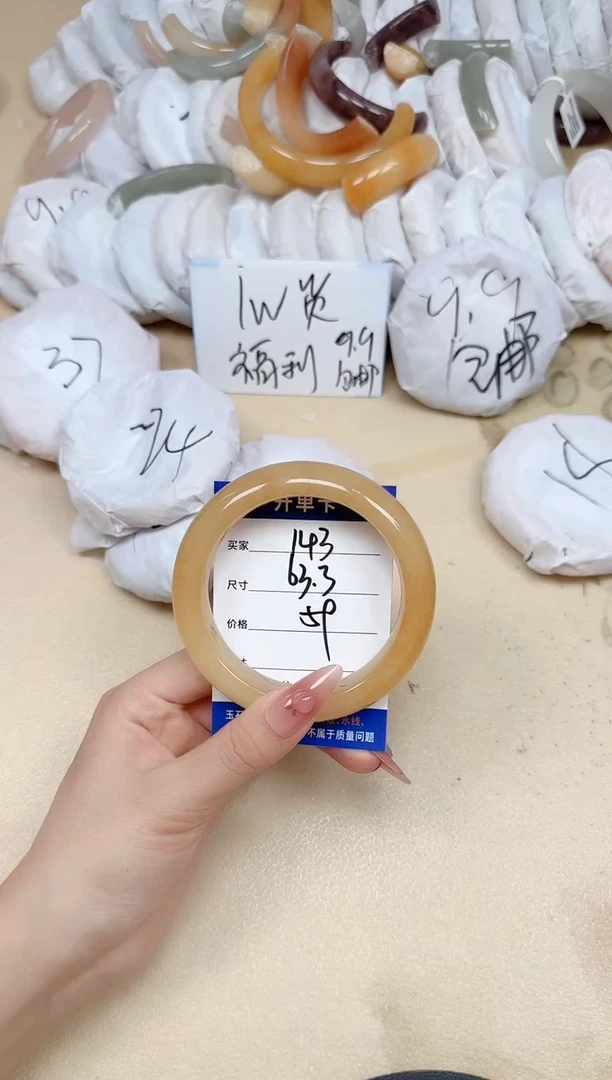 9.9
1W贸
福利 9.9
包邮
9.9
包邮
37
74
开单卡
买家 143
尺寸 63.3
价格 59
水线、
不属于质量问题